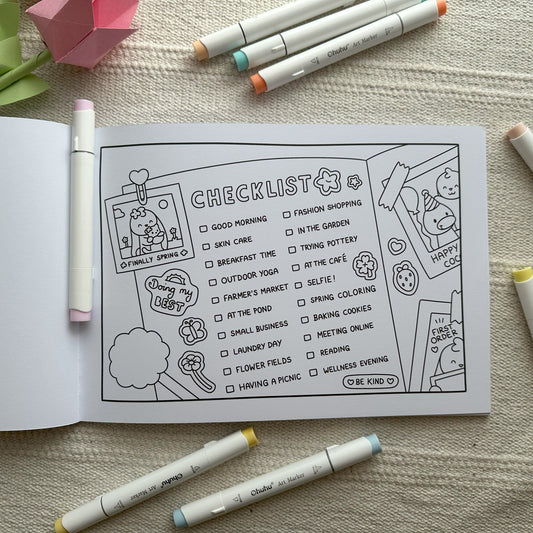 Ohuhu® Art Marker
CHECKLIST
GOOD MORNING
SKIN CARE
BREAKFAST TIME
OUTDOOR YOGA
FARMER'S MARKET
AT THE POND
SMALL BUSINESS
LAUNDRY DAY
FLOWER FIELDS
HAVING A PICNIC
FASHION SHOPPING
IN THE GARDEN
TRYING POTTERY
AT THE CAFÉ
SELFIE!
SPRING COLORING
BAKING COOKIES
MEETING ONLINE
READING
WELLNESS EVENING
BE KIND
FINALLY SPRING
Doing my
BEST
HAPPY
FIRST
ORDER
Ohuhu® Art Marker
Ohuhu® Art Marker